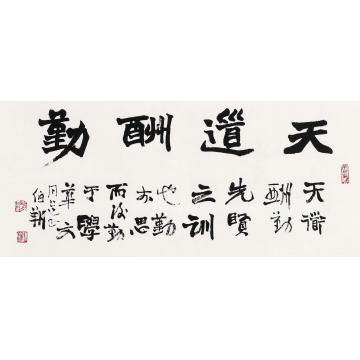 天道酬勤
天道
酬勤
先贤
之训
也勤
于思
而後勤
于學
華文
伯翔